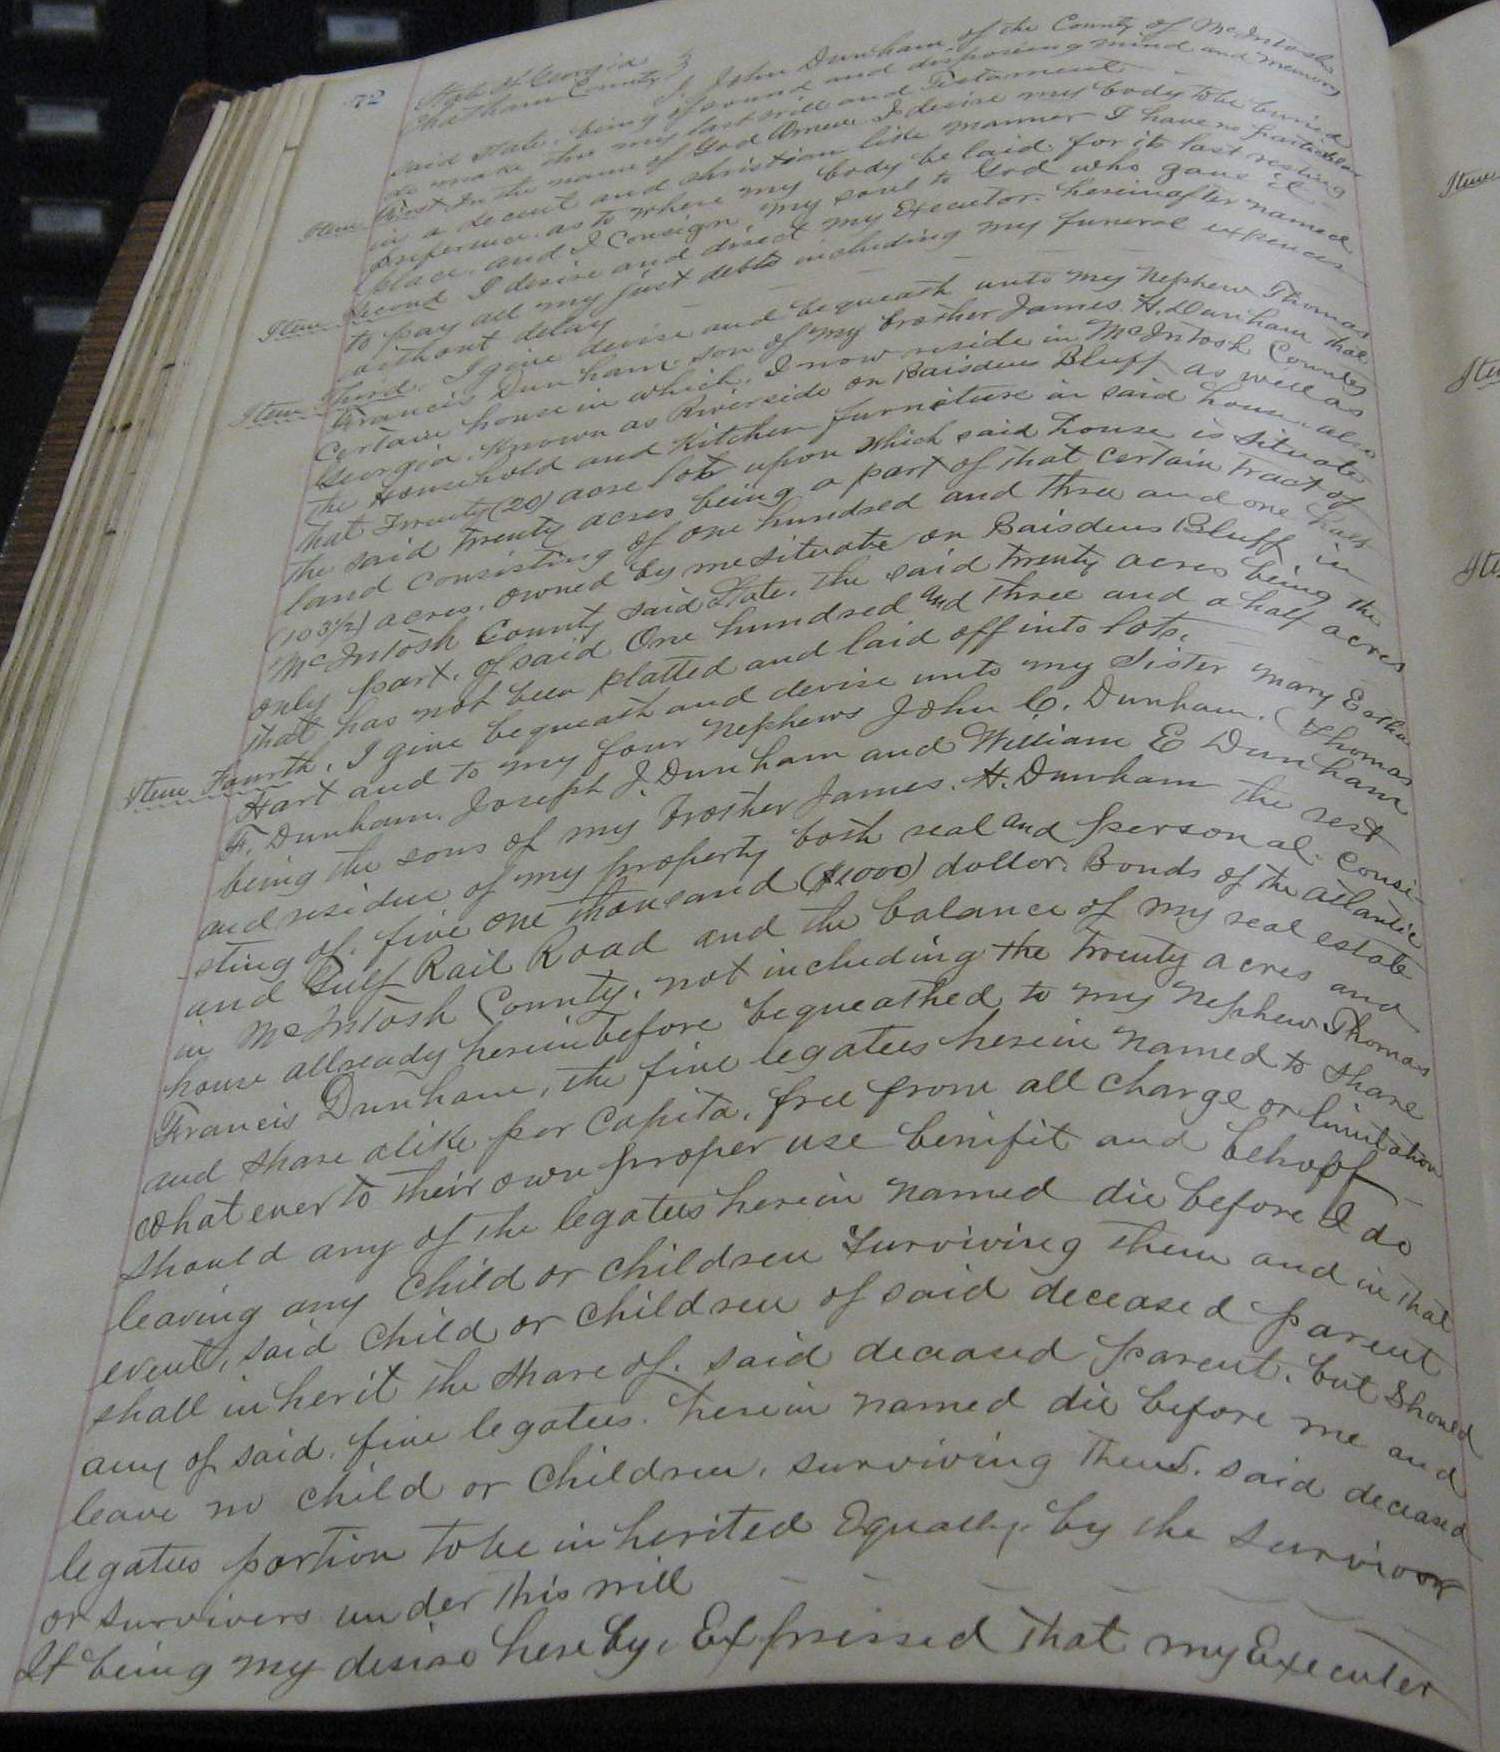 72
State of Georgia
Chatham County } I. John Dunham of the County of McIntosh
said State, being of sound and disposing mind and memory
do make this my last will and Testament
Item First In the name of God Amen I desire my body to be buried
in a decent and christian like manner I have no particular
preference as to where my body be laid for its last resting
place. and I consign my soul to God who gave it
Item Second I desire and direct my Executor. hereinafter named
to pay all my just debts including my funeral expences
without delay
Item Third. I give devise and bequeath unto my Nephew Thomas
Francis Dunham son of my brother James. H. Dunham that
certain house in which. I now reside in McIntosh County
Georgia. Known as Riverside on Baisdens Bluff as well as
the Household and Kitchen furniture in said house also
that Twenty (20) acre lot upon which said house is situate
the said twenty acres being a part of that certain tract of
land consisting of one hundred and three and one half
(103½) acres. owned by me situate on Baisdens Bluff in
McIntosh County said State. the said twenty acres being the
only part. of said One hundred and three and a half acres
that has not been platted and laid off into lots.
Item Fourth. I give bequeath and devise unto my Sister Mary Esther
Hart and to my four Nephews John C. Dunham. (Thomas
F. Dunham. Joseph J. Dunham and William E Dunham
being the sons of my brother James. H. Dunham the rest
and residue of my property both real and personal. consi-
sting of. five one thousand ($1000) dollar. Bonds of the Atlantic
and Gulf Rail Road and the balance of my real estate
in McIntosh County. not including the twenty acres and
house allready hereinbefore bequeathed to my nephew Thomas
Francis Dunham, the five legatees herein named to share
and share alike per Capita. free from all charge or limitation
what ever to their own proper use benifit and behoff
should any of the legatees herein named die before I do
leaving any child or children surviving them and in that
event, said child or children of said deceased parent
shall inherit the share of. said deceased parent. but should
any of said. five legatees. herein named die before me and
leave no child or children. surviving them. said deceased
legatees portion to be inherited Equally. by the survivor
or survivers under this will
It being my desire hereby. Expressed that my Executer